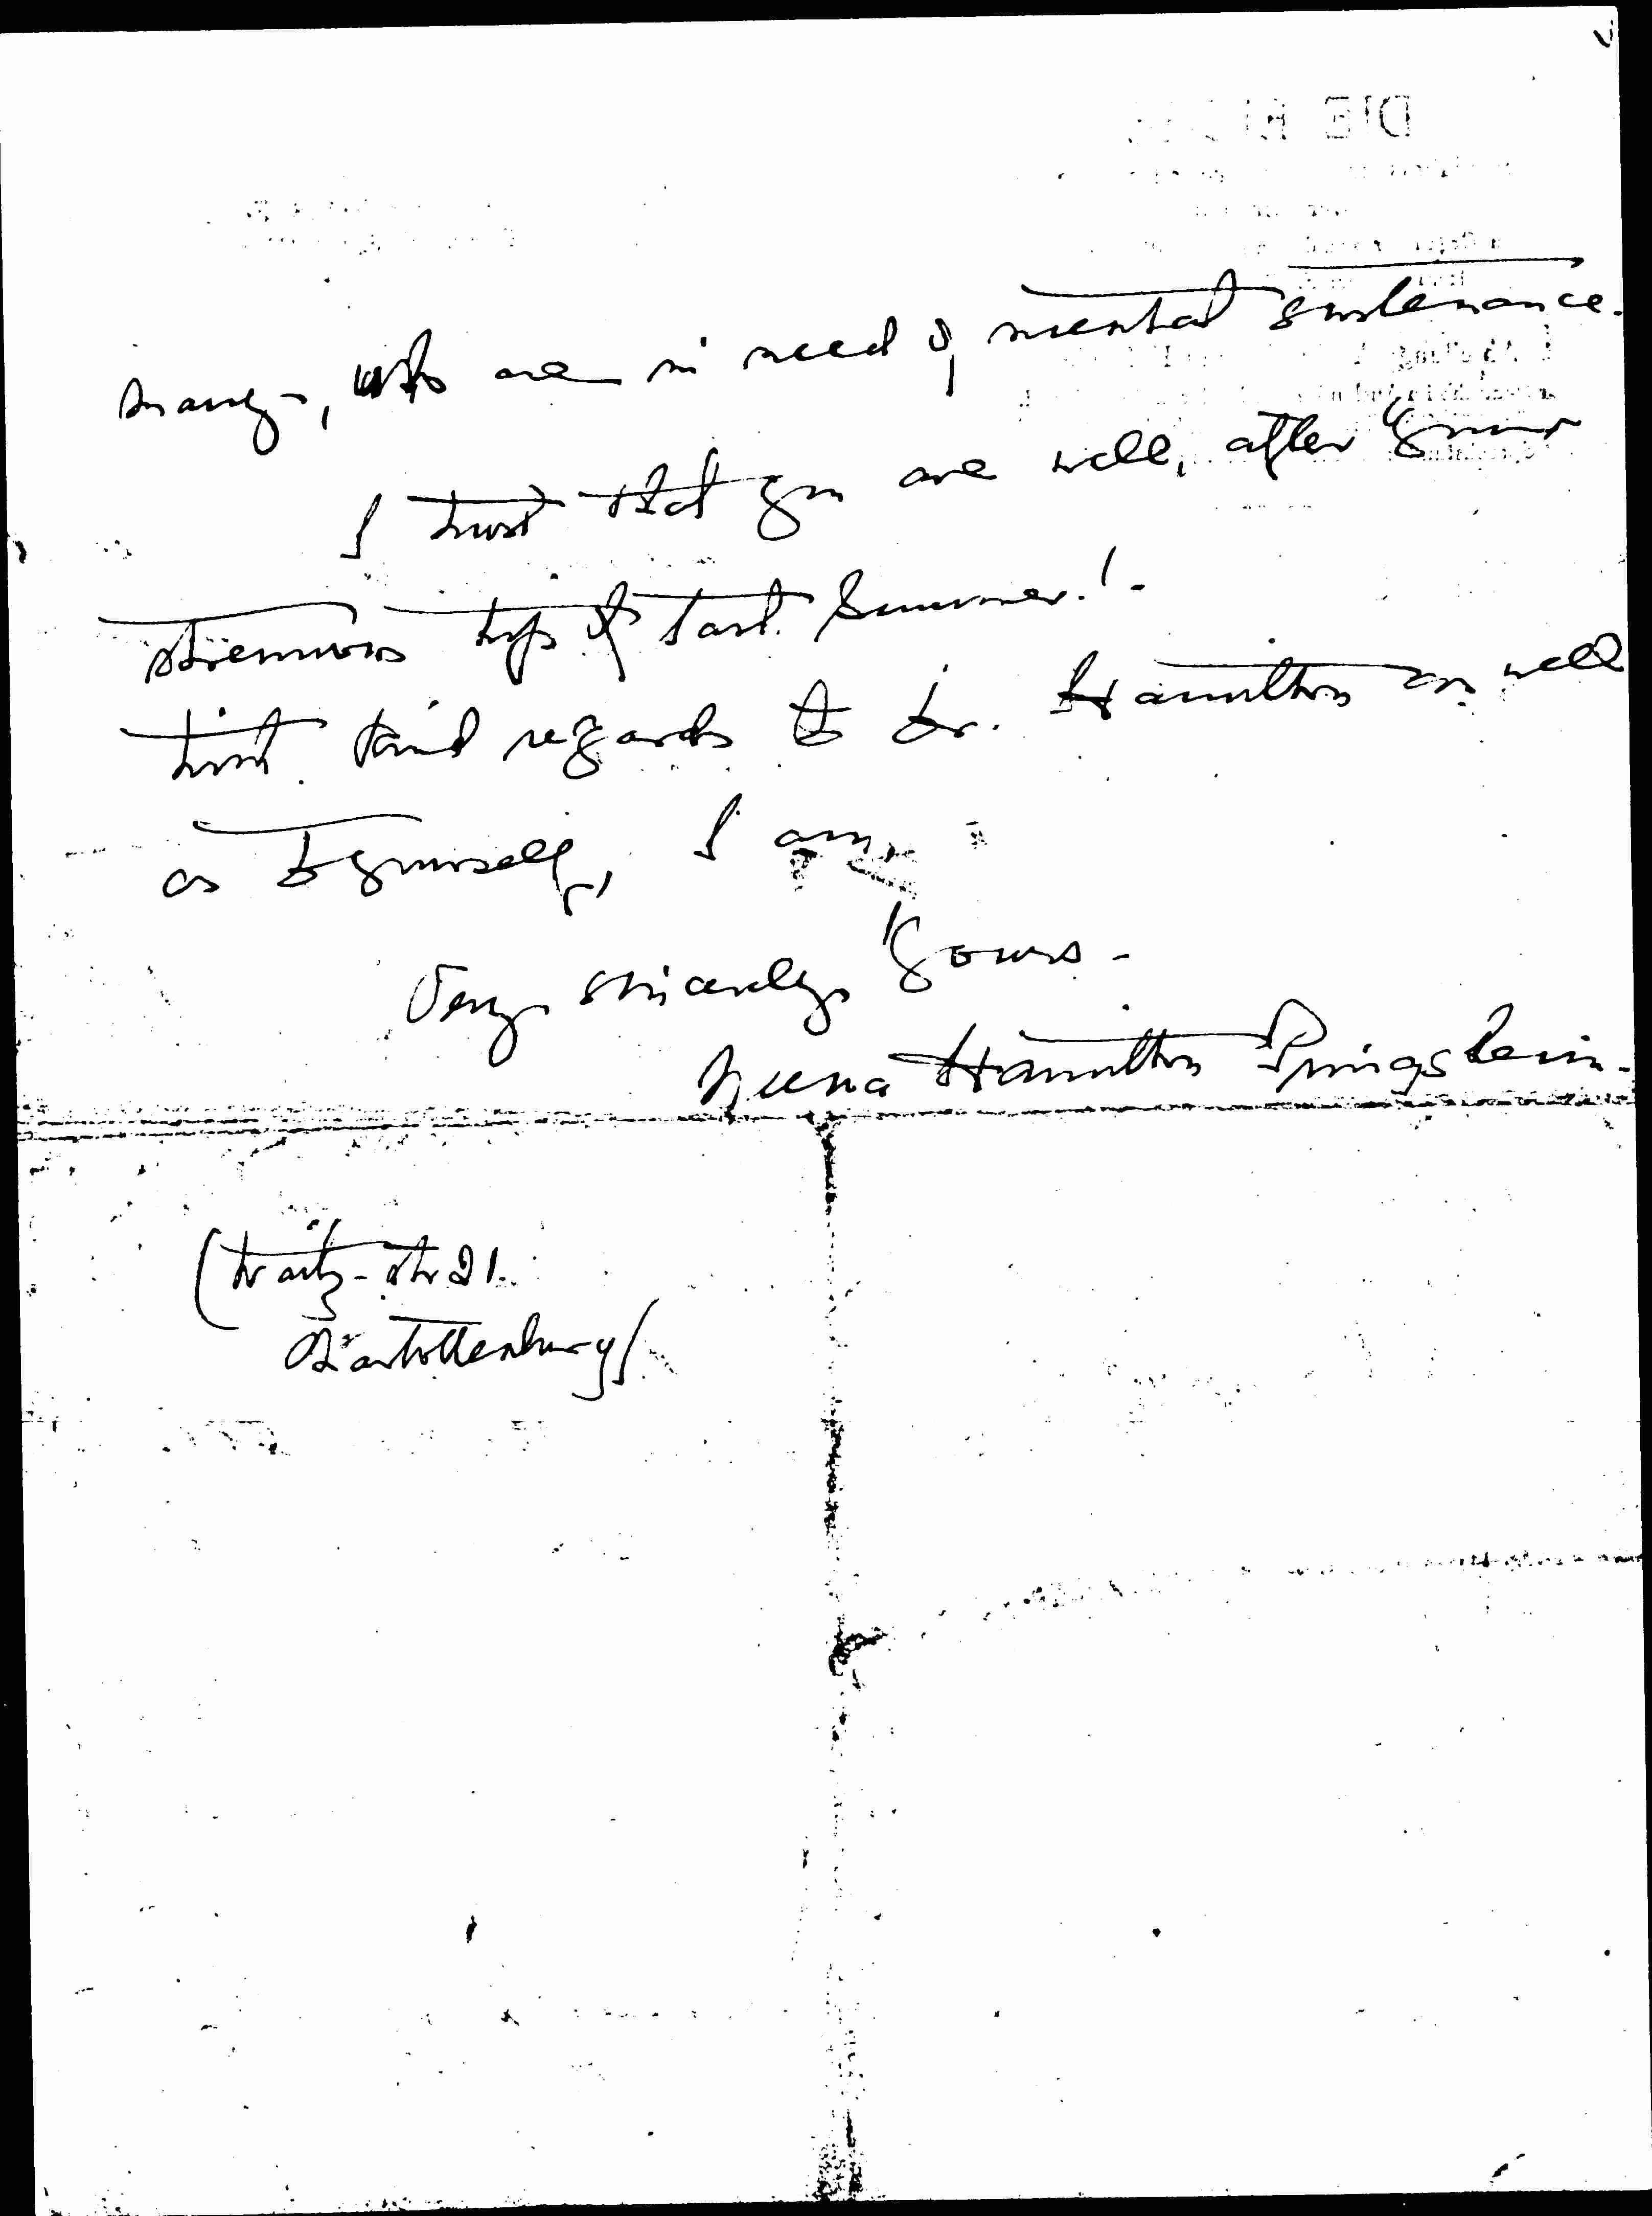 many, who are in need of mental sustenance.
I trust that you are well, after your
strenuous trip of last Summer! -
With kind regards to Dr. Hamilton as well
as to yourself, I am,
Very sincerely Yours -
Hamilton Pringsheim -
(Waitz-str 21.
Charlottenburg)